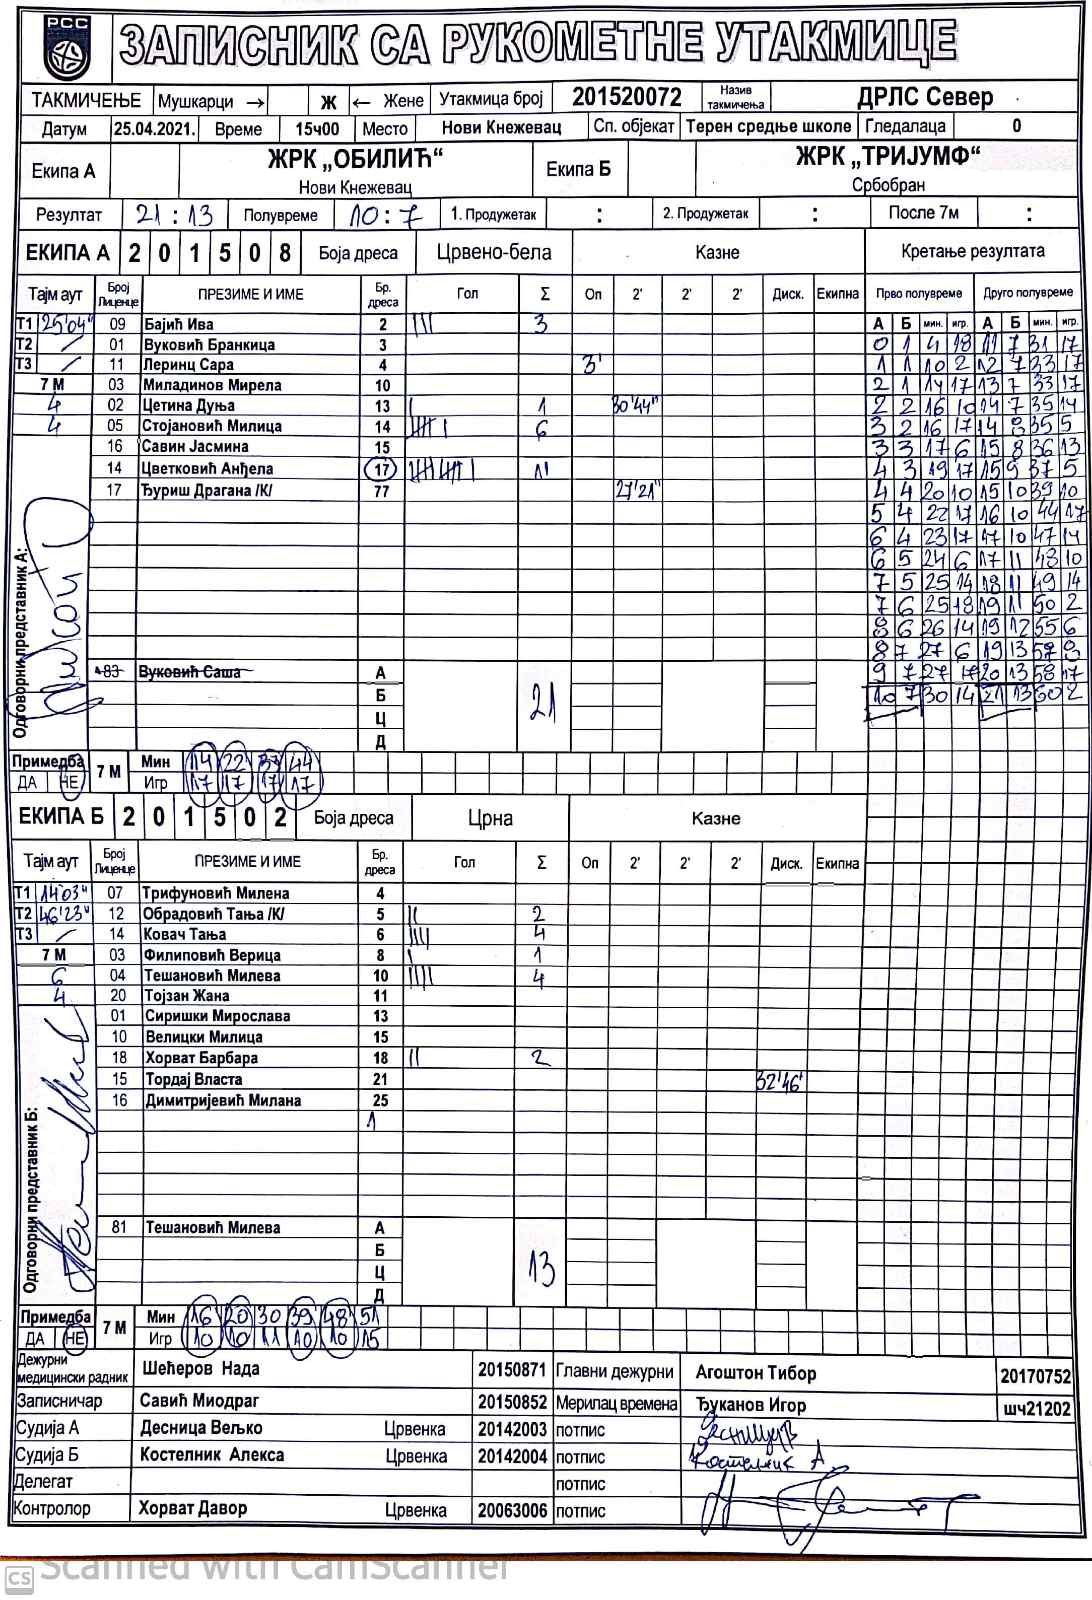 РСС
ЗАПИСНИК СА РУКОМЕТНЕ УТАКМИЦЕ
ТАКМИЧЕЊЕ Мушкарци → Ж ← Жене Утакмица број 201520072 Назив такмичења ДРЛС Север
Датум 25.04.2021. Време 15ч00 Место Нови Кнежевац Сп. објекат Терен средње школе Гледалаца 0
Екипа А ЖРК „ОБИЛИЋ“ Нови Кнежевац Екипа Б ЖРК „ТРИЈУМФ“ Србобран
Резултат 21:13 Полувреме 10:7 1. Продужетак : 2. Продужетак : После 7м :
ЕКИПА А 2 0 1 5 0 8 Боја дреса Црвено-бела Казне Кретање резултата
Тајм аут Број Лиценце ПРЕЗИМЕ И ИМЕ Бр. дреса Гол Σ Оп 2' 2' 2' Диск. Екипна Прво полувреме Друго полувреме
А Б мин. игр. А Б мин. игр.
Т1 25'04" 09 Бајић Ива 2 ||| 3
Т2 / 01 Вуковић Бранкица 3
Т3 / 11 Леринц Сара 4 3'
7 М 03 Миладинов Мирела 10
4 02 Цетина Дуња 13 | 1 30'44"
4 05 Стојановић Милица 14 |||| | 6
16 Савин Јасмина 15
14 Цветковић Анђела 17 |||| |||| | 11
17 Ђуриш Драгана /К/ 77 27'21"
0 1 4 18 11 7 31 17
1 1 10 2 12 7 33 17
2 1 14 17 13 7 33 17
2 2 16 10 14 7 35 14
3 2 16 17 14 8 35 5
3 3 17 6 15 8 36 13
4 3 19 17 15 9 37 5
4 4 20 10 15 10 39 10
5 4 22 17 16 10 44 17
6 4 23 17 17 10 47 14
6 5 24 6 17 11 48 10
7 5 25 14 18 11 49 14
7 6 25 18 19 11 50 2
8 6 26 14 19 12 55 6
8 7 27 6 19 13 57 8
9 7 27 17 20 13 58 17
10 7 30 14 21 13 60 2
Одговорни представник А:
83 Вуковић Саша А
Б
Ц
Д
21
Примедба ДА НЕ 7 М
Мин 14 22 33 44
Игр 17 17 17 17
ЕКИПА Б 2 0 1 5 0 2 Боја дреса Црна Казне
Тајм аут Број Лиценце ПРЕЗИМЕ И ИМЕ Бр. дреса Гол Σ Оп 2' 2' 2' Диск. Екипна
Т1 14'03" 07 Трифуновић Милена 4
Т2 46'23" 12 Обрадовић Тања /К/ 5 || 2
Т3 / 14 Ковач Тања 6 |||| 4
7 М 03 Филиповић Верица 8 | 1
6 04 Тешановић Милева 10 |||| 4
4 20 Тојзан Жана 11
01 Сиришки Мирослава 13
10 Велицки Милица 15
18 Хорват Барбара 18 || 2
15 Тордај Власта 21 32'46"
16 Димитријевић Милана 25
1
Одговорни представник Б:
81 Тешановић Милева А
Б
Ц
Д
13
Примедба ДА НЕ 7 М
Мин 16 20 30 39 48 51
Игр 10 10 11 10 10 15
Дежурни медицински радник Шећеров Нада 20150871 Главни дежурни Агоштон Тибор 20170752
Записничар Савић Миодраг 20150852 Мерилац времена Ђуканов Игор шч21202
Судија А Десница Вељко Црвенка 20142003 потпис
Судија Б Костелник Алекса Црвенка 20142004 потпис Костелник А.
Делегат потпис
Контролор Хорват Давор Црвенка 20063006 потпис
CS Scanned with CamScanner